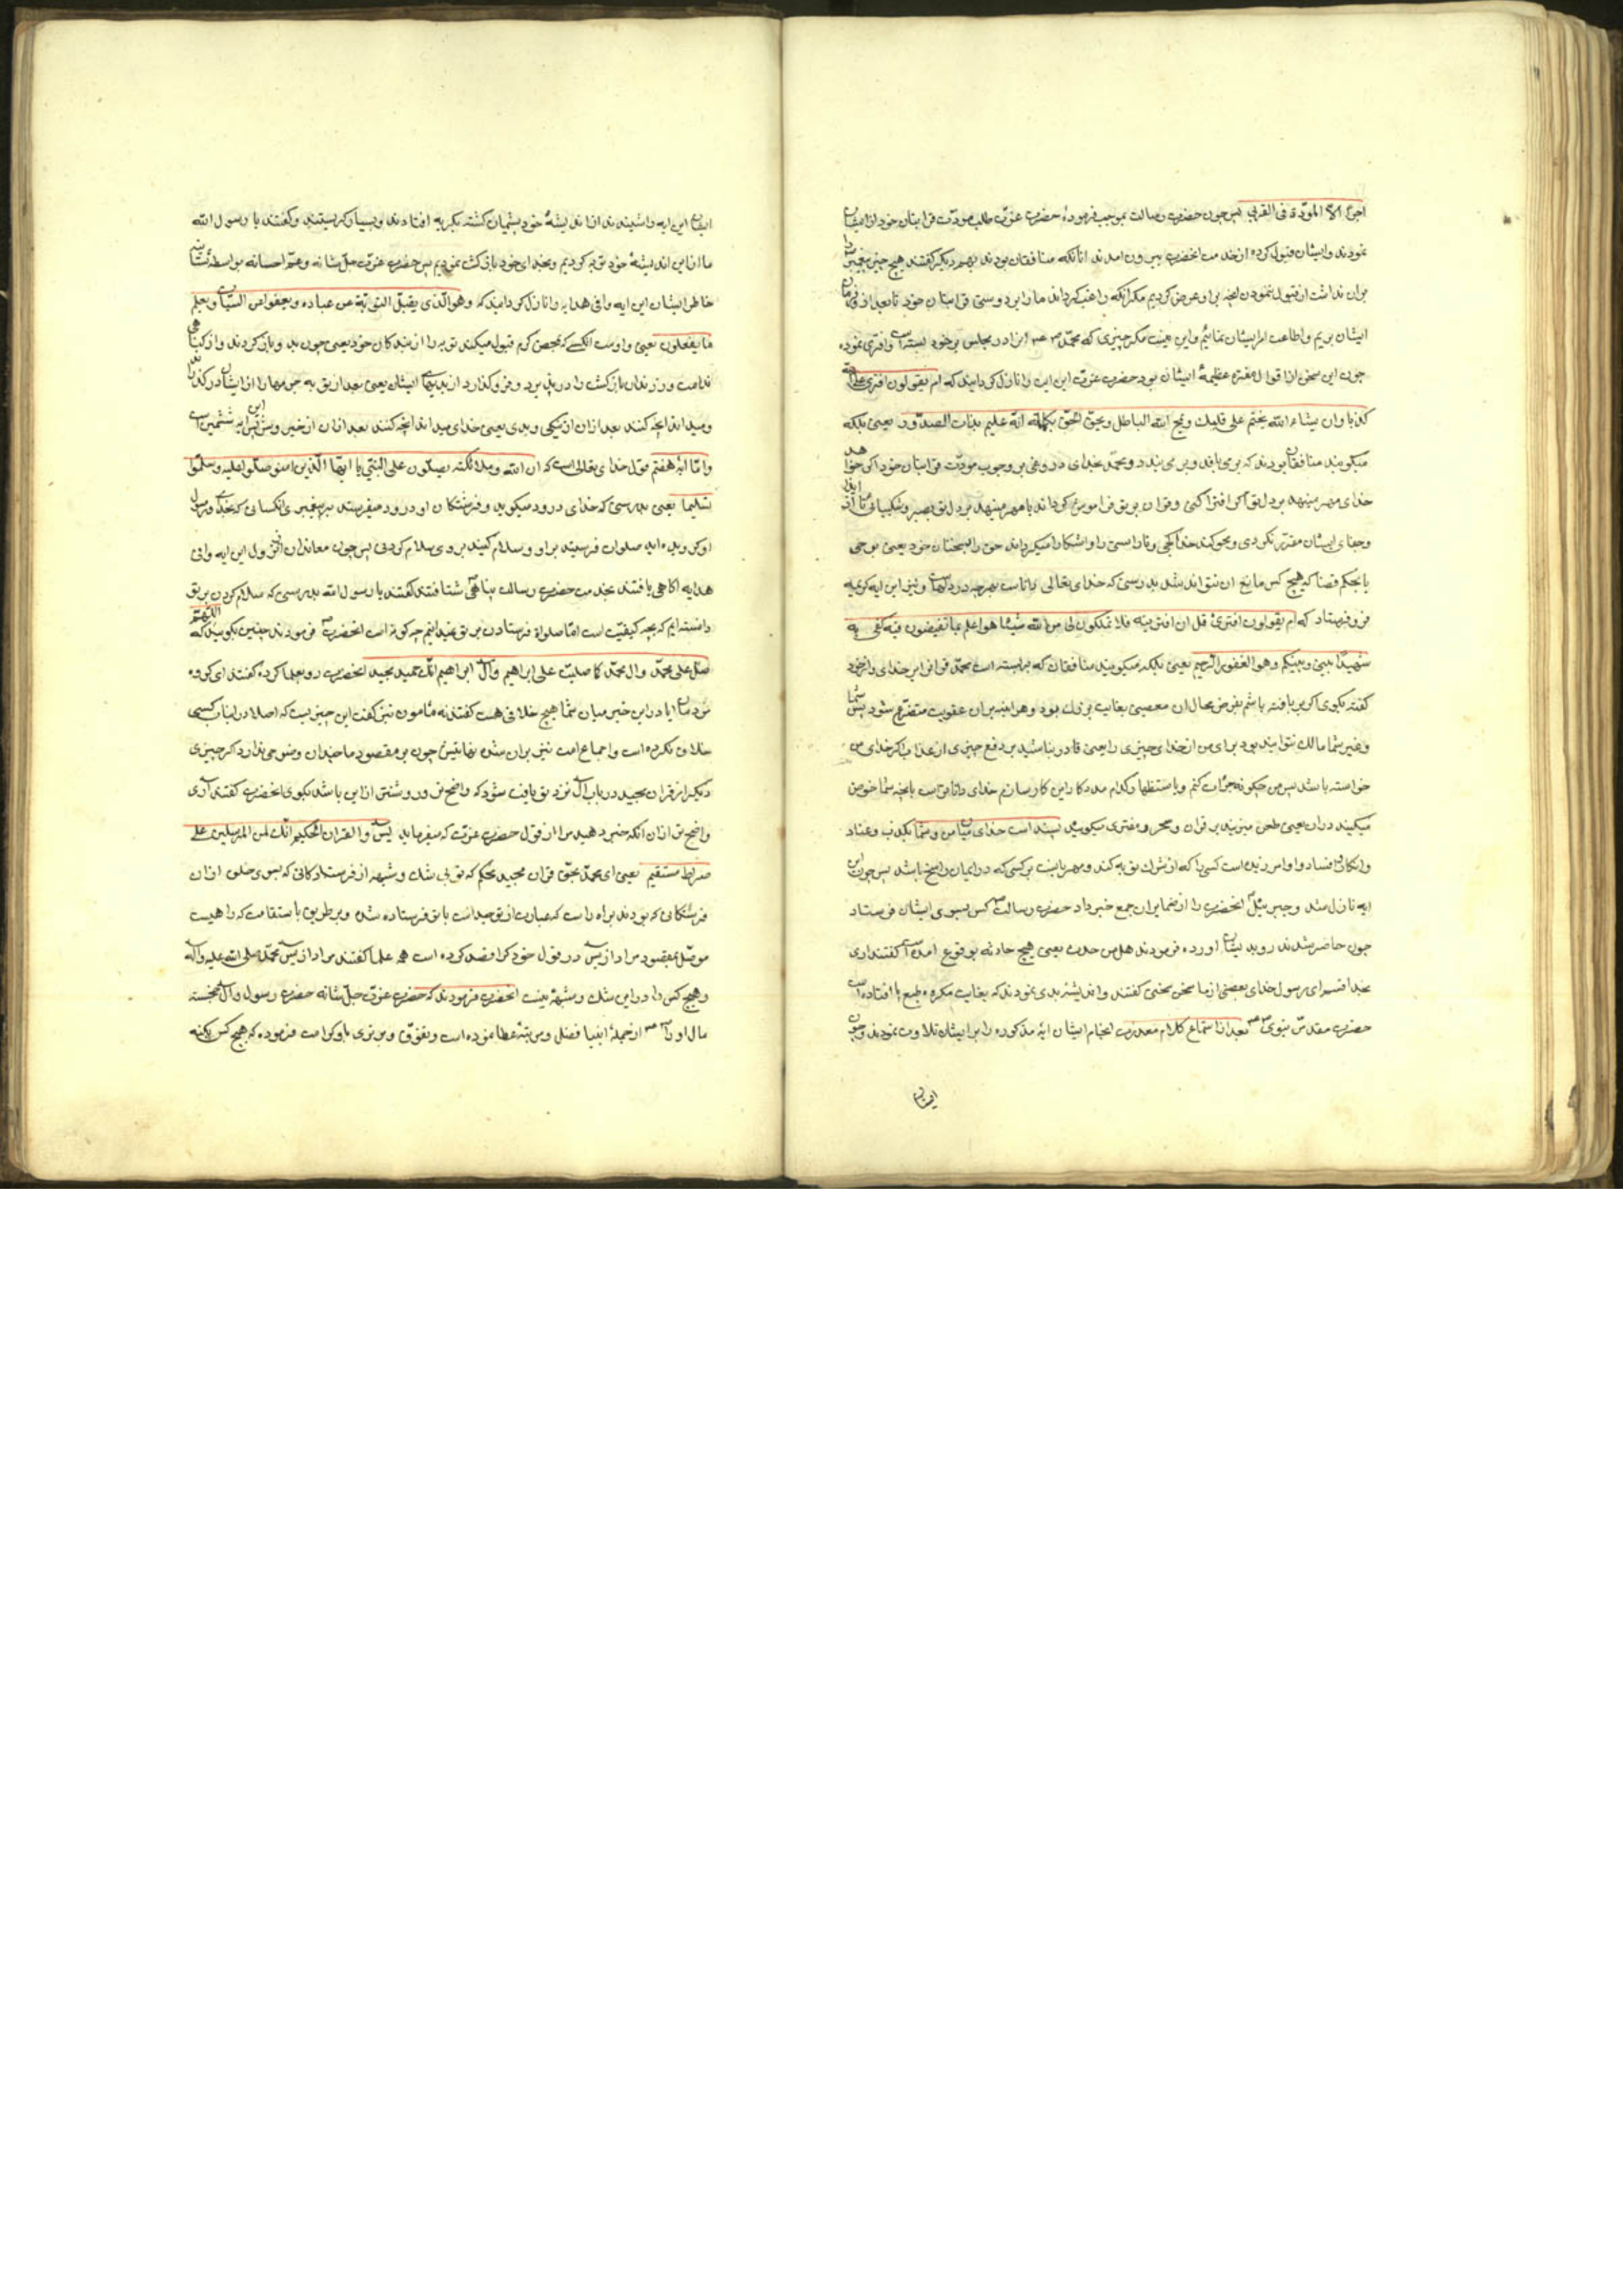 اجرا الا المودّة فی القربی پس چون حضرت رسالت بموجب فرمودهٔ حضرت عزّت طلب مودّت قرابتان خود از ایشان
نمودند و ایشان قبول کرده از خدمت انحضرت بیرون امدند انانکه منافقان بودند بهم دیکر کفتند هیچ چیز پیغمبر را
بران نداشت از قبول ننمودن انچه براو عرض کردیم مکر انکه راغب کرداند ما را بر دوستی قرابتان خود تا بعد از وی فرمان
ایشان بریم و اطاعت امر ایشان نمائیم و این نیست مکر چیزی که محمّد انرا در مجلس بر خود بسته است و افتری نموده
چون این سخن از اقوال مفتره عظیمهٔ ایشان بود حضرت عزّت این ایت را نازل کردانید که ام یقولون افتری علی الله
کذبا و ان یشاء الله یختم علی قلبك و یمح الله الباطل و یحقّ الحقّ بکلماته انّه علیم بذات الصدور یعنی بلکه
میکویند منافقان بودند که بر می بافد و بر می بندد محمّد بخدای دروغی بر وجوب مودّت قرابتان خود اکر خواهد
خدای مهر مینهد بر دل تو اکر افترا کنی و قران بر تو فراموش کرداند یا مهر مینهد بر دل تو بصبر و شکیبائی تا از ایذا
و جفای ایشان متضرّر نکردی و محو کند خدا کجی و ناراستی را و اشکارا میکرداند حق را بسخنان خود یعنی بوحی
یا بحکم قضا که هیچ کس مانع ان نتواند شد بدرستی که خدای تعالی داناست بهرچه در دلهاست و نیز این ایه کریمه
فرو فرستاد که ام یقولون افتریه قل ان افتریته فلا تملکون لی من الله شیئا هو اعلم بما تفیضون فیه کفی به
شهیدا بینی و بینکم و هو الغفور الرّحیم یعنی بلکه میکویند منافقان که بربسته است محمّد قران را بر خدای و از خود
کفته بکوی اکر بر بافته باشم بفرض محال ان معصیتی بغایت بزرك بود و هراینه بران عقوبت متفرّع شود پس شما
و غیر شما مالك نتوانید بود برای من از خدای چیزی را یعنی قادر نباشید بر دفع چیزی از عذاب اکر خدای من
خواسته باشد پس من چکونه جرات کنم و باستظهار کدام مددکار این کار سازم خدای داناتر است بانچه شما خوض
میکنید دران یعنی طعن میزنید بر قران و سحر و مفتری میکوئید بسند است خدای میان من و شما بکذب و عناد
و انکار و افساد و او امرزنده است کسی را که از شرك توبه کند و مهربانست بر کسی که در ایمان راسخ باشد پس چون این
ایه نازل شد و جبرئیل انحضرت را از ضمایر ان جمع خبر داد حضرت رسالت کس بسوی ایشان فرستاد
چون حاضر شدند رو بدیشان اورده فرمودند هل من حدث یعنی هیچ حادثه بوقوع امده است کفتند اری
بخدا قسم ای رسول خدای بعضی از ما سخن سختی کفتند و اندیشهٔ بدی نمودند که بغایت مکروه طبع ما افتاده است
حضرت مقدّس نبوی بعد از استماع کلام معذرت انجام ایشان ایهٔ مذکوره را بر ایشان تلاوت نمودند و چون
ایشان
ایشان این ایه را شنیدند از اندیشهٔ خود پشیمان کشته بکریه افتادند و بسیار کریستند و کفتند یا رسول الله
ما از این اندیشهٔ خود توبه کردیم و بخدای خود بازکشت نمودیم پس حضرت عزّت جلّ شانه و عمّ احسانه بواسطهٔ تسلّی
خاطر ایشان این ایه وافی هدایه را نازل کردانید که و هو الّذی یقبل التوبة عن عباده و یعفو عن السیّات و یعلم
ما یفعلون یعنی و اوست انکسی که بمحض کرم قبول میکند توبه را از بندکان خود یعنی چون بدو بازکردند و از کناهان
ندامت ورزند ان بازکشت را در پذیرد و فرو کذارد از بدیهای ایشان یعنی بعد از توبه جرمها را از ایشان درکذراند
و میداند انچه کنند بعد ازان از نیکی و بدی یعنی خدای میداند انچه کنند بعد ازان از خیر و شر پس این ایه ششمین است
و امّا ایهٔ هفتم قول خدای تعالی است که ان الله و ملائکته یصلّون علی النبّی یا ایّها الّذین امنو صلّو علیه و سلّمو
تسلیما یعنی بدرستی که خدای درود میکوید و فرشتکان او درود میفرستند بر پیغمبر ای انکسانی که بخدا و رسول
او کرویده اید صلوات فرستید بر او و سلام کنید بر وی سلام کردنی پس چون معاندان از نزول این ایه وافی
هدایه اکاهی یافتند بخدمت حضرت رسالت پناهی شتافتند کفتند یا رسول الله بدرستی که سلام کردن بر تو
دانسته ایم که بچه کیفیّت است امّا صلواة فرستادن بر تو نمیدانیم چه کونه است انحضرت فرمودند چنین بکوئید که اللّهمّ
صلّ علی محمّد و ال محمّد کما صلیّت علی ابراهیم و ال ابراهیم انّك حمید مجید انحضرت رو بعلما کرده کفتند ای کروه
مردمان ایا در این خبر میان شما هیچ خلافی هست کفتند نه مامون نیز کفت این چیزیست که اصلا در اینباب کسی
خلاف نکرده است و اجماع امت نیز بران شده بفرمائید چون بر مقصود ما چندان وضوحی ندارد اکر چیزی
دیکر از قران مجید در باب ال نزد تو یافت شود که واضح تر و روشنتر از این باشد بکوی انحضرت کفتند اری
واضح تر ازان انکه خبر دهید مرا از قول حضرت عزّت که میفرماید یس و القران الحکیم انّك لمن المرسلین علی
صراط مستقیم یعنی ای محمّد بحقّ قران مجید محکم که تو بی شك و شبهه از فرستادکانی که بسوی خلق ازان
فرستکانی که بودند براه راست که عبارت از توحیدست یا تو فرستاده شده و بر طریق با استقامت که راهیست
موصل بمقصود مراد از یس در قول خود کرا قصد کرده است همه علما کفتند مراد از یس محمّد صلی الله علیه و اله
و هیچ کس را در این شك و شبهه نیست انحضرت فرمودند که حضرت عزّت جلّ شانه حضرت رسول و ال خجسته
مال او را از جملهٔ انبیا فضل و مرتبهٔ عطا نموده است و تفوّق و برتری باو کرامت فرموده که هیچ کس بکنه